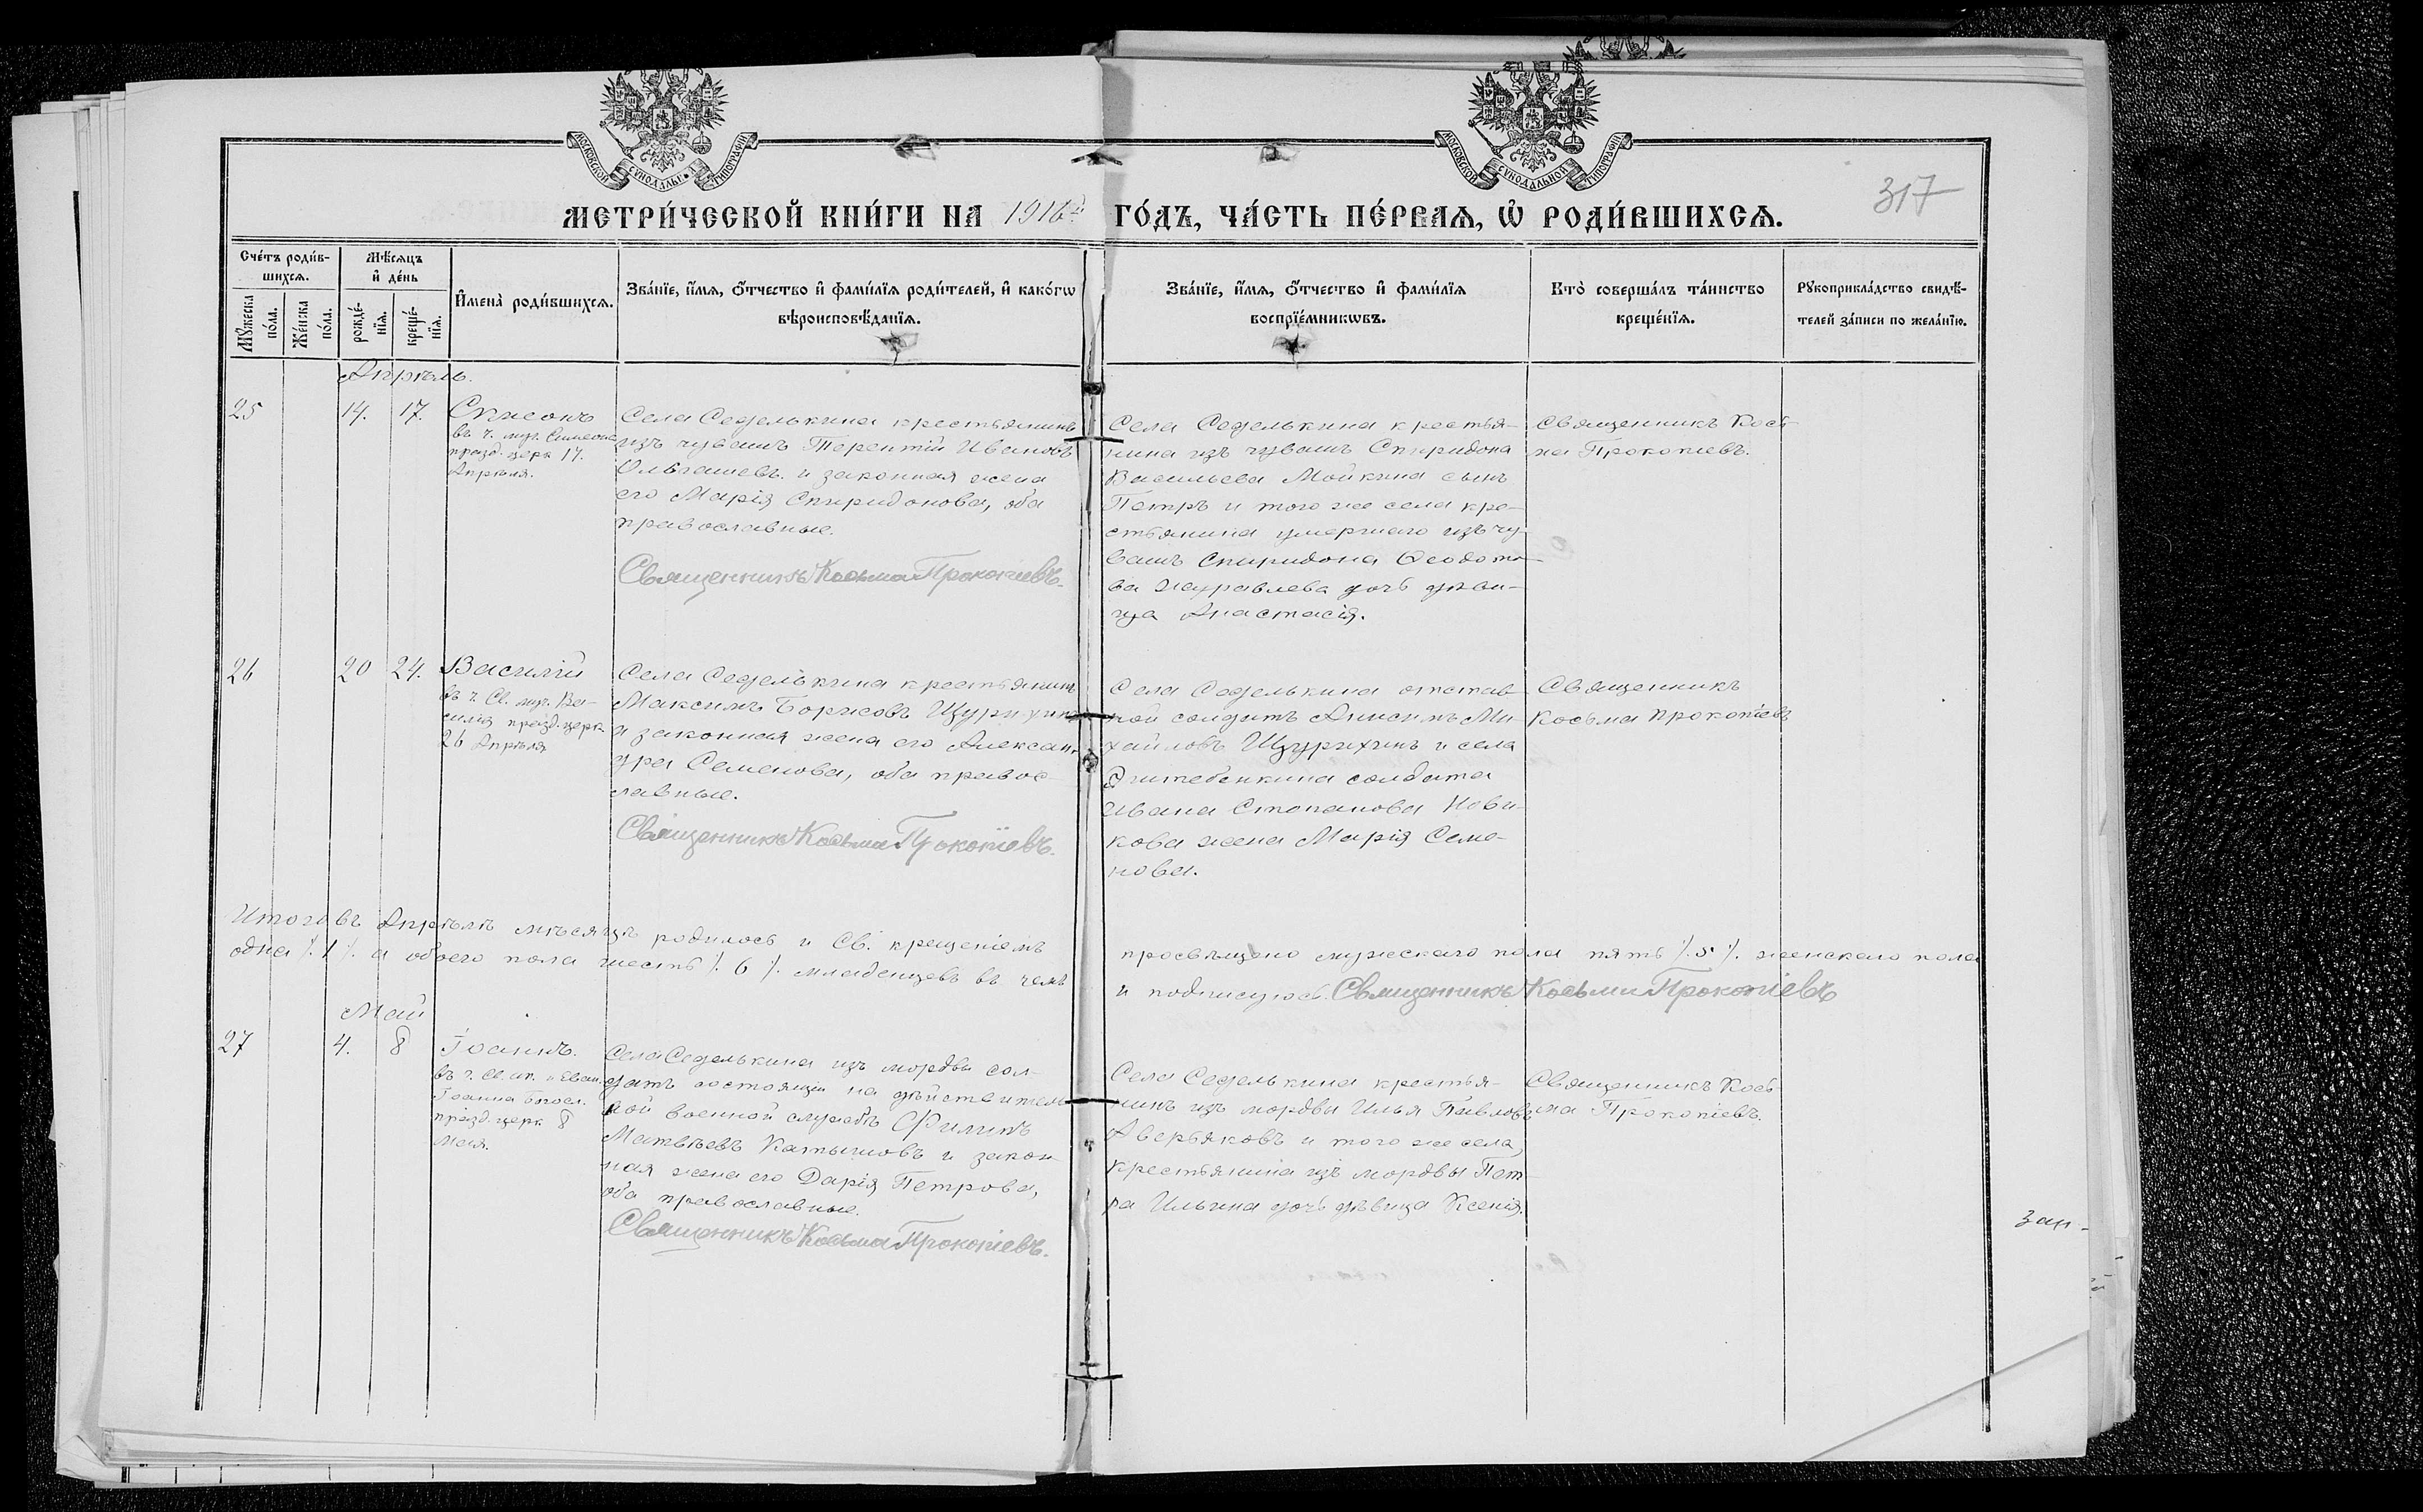 МОСКОВСКОЙ СѴНОДАЛЬНОЙ ТИПОГРАФІИ
МОСКОВСКОЙ СѴНОДАЛЬНОЙ ТИПОГРАФІИ
317
МЕТРИ́ЧЕСКОЙ КНИ́ГИ НА 1916й ГО́ДЪ, ЧА́СТЬ ПЕ́РВАѦ, Ѽ РОДИ́ВШИХСѦ.
Сче́тъ роди́в-
шихсѧ.
Мꙋжеска по́ла.
Же́нска по́ла.
Мѣ́сѧцъ
и҆ де́нь
рожде́-нїѧ.
креще́-нїѧ.
И҆мена̀ роди́вшихсѧ.
Зва́нїе, и҆́мѧ, ѻ҆́тчество и҆ фами́лїѧ роди́телей, и҆ како́гѡ
вѣроисповѣ́данїѧ.
Зва́нїе, и҆́мѧ, ѻ҆́тчество и҆ фами́лїѧ
воспрїе́мникѡвъ.
Кто̀ соверша́лъ та́инство
креще́нїѧ.
Рꙋкоприкла́дство свидѣ́-
телей за́писи по жела́нїю.
Апрѣль.
25
14.
17.
въ ч. муч. Симеона
празд. церк. 17.
Апрѣля.
Села Седелькина крестьянинъ
изъ чувашъ Терентій Ивановъ
и законная жена
его Марія Спиридонова, оба
православные.
Священникъ Косьма Прокопіевъ.
Села Седелькина крестья-
нина изъ чувашъ Спиридона
Васильева Мойкина сынъ
Петръ и того же села кре-
стьянина умершаго изъ чу-
вашъ Спиридона Ѳеодото-
ва Журавлева дочь дѣви-
ца Анастасія.
Священникъ Кось-
ма Прокопіевъ.
26
20
24.
Василій
въ ч. Св. муч. Ва-
силія празд. церк.
26 Апрѣля
Села Седелькина крестьянинъ
Максимъ Борисовъ Щурихинъ
и законная жена его Алексан-
дра Семенова, оба правос-
лавные.
Священникъ Косьма Прокопіевъ.
Села Седелькина отстав-
ной солдатъ Анисимъ Ми-
хайловъ Щурихинъ и села
солдата
Ивана Степанова Нови-
кова жена Марія Семе-
нова.
Священникъ
Косьма Прокопіевъ
Итого въ Апрѣлѣ мѣсяцѣ родилось и Св. крещеніемъ просвѣщено мужескаго пола пять /. 5 /. женскаго пола
одна /. 1 /. а обоего пола шесть /. 6 /. младенцевъ въ чемъ и подписуюсь. Священникъ Косьма Прокопіевъ
Май
27
4.
8
Іоаннъ.
въ ч. Св. ап. и Еван.
Іоанна Богосл.
празд. церк. 8
Мая.
Села Седелькина изъ мордвы сол-
датъ состоящій на дѣйствитель-
ной военной службѣ Филипъ
Матвѣевъ Катышовъ и закон-
ная жена его Дарія Петрова,
оба православные.
Священникъ Косьма Прокопіевъ.
Села Седелькина крестья-
нинъ изъ мордвы Илья Павловъ
Аверьяковъ и того же села,
крестьянина изъ мордвы Пет-
ра Ильина дочь дѣвица Ксенія.
Священникъ Кось-
ма Прокопіевъ.
Зап-